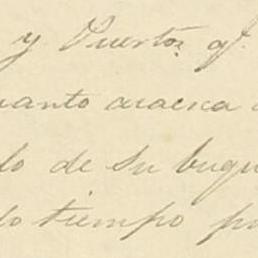 y Puerto, qᵉ.
uanto acaesca
lo de su buqu
lo tiempo p